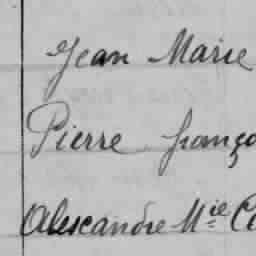 Jean Marie
Pierre franço
Alexandre Mie